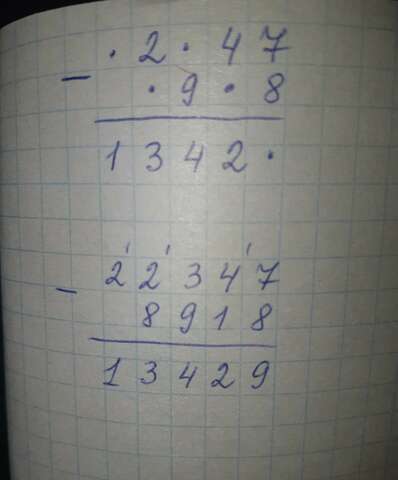 · 2 · 4 7
−
· 9 · 8
1 3 4 2 ·
2 2 3 4 7
−
8 9 1 8
1 3 4 2 9